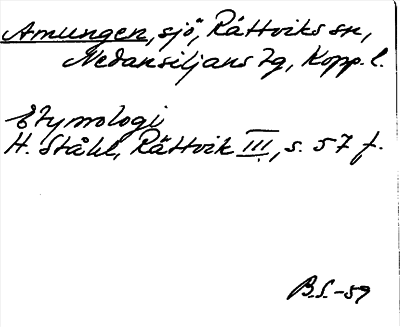 Amungen, sjö, Rättviks sn,
Nedansiljans tg, Kopp. l.
Etymologi
H. Ståhl, Rättvik III, s. 57 f.
B.S.-59